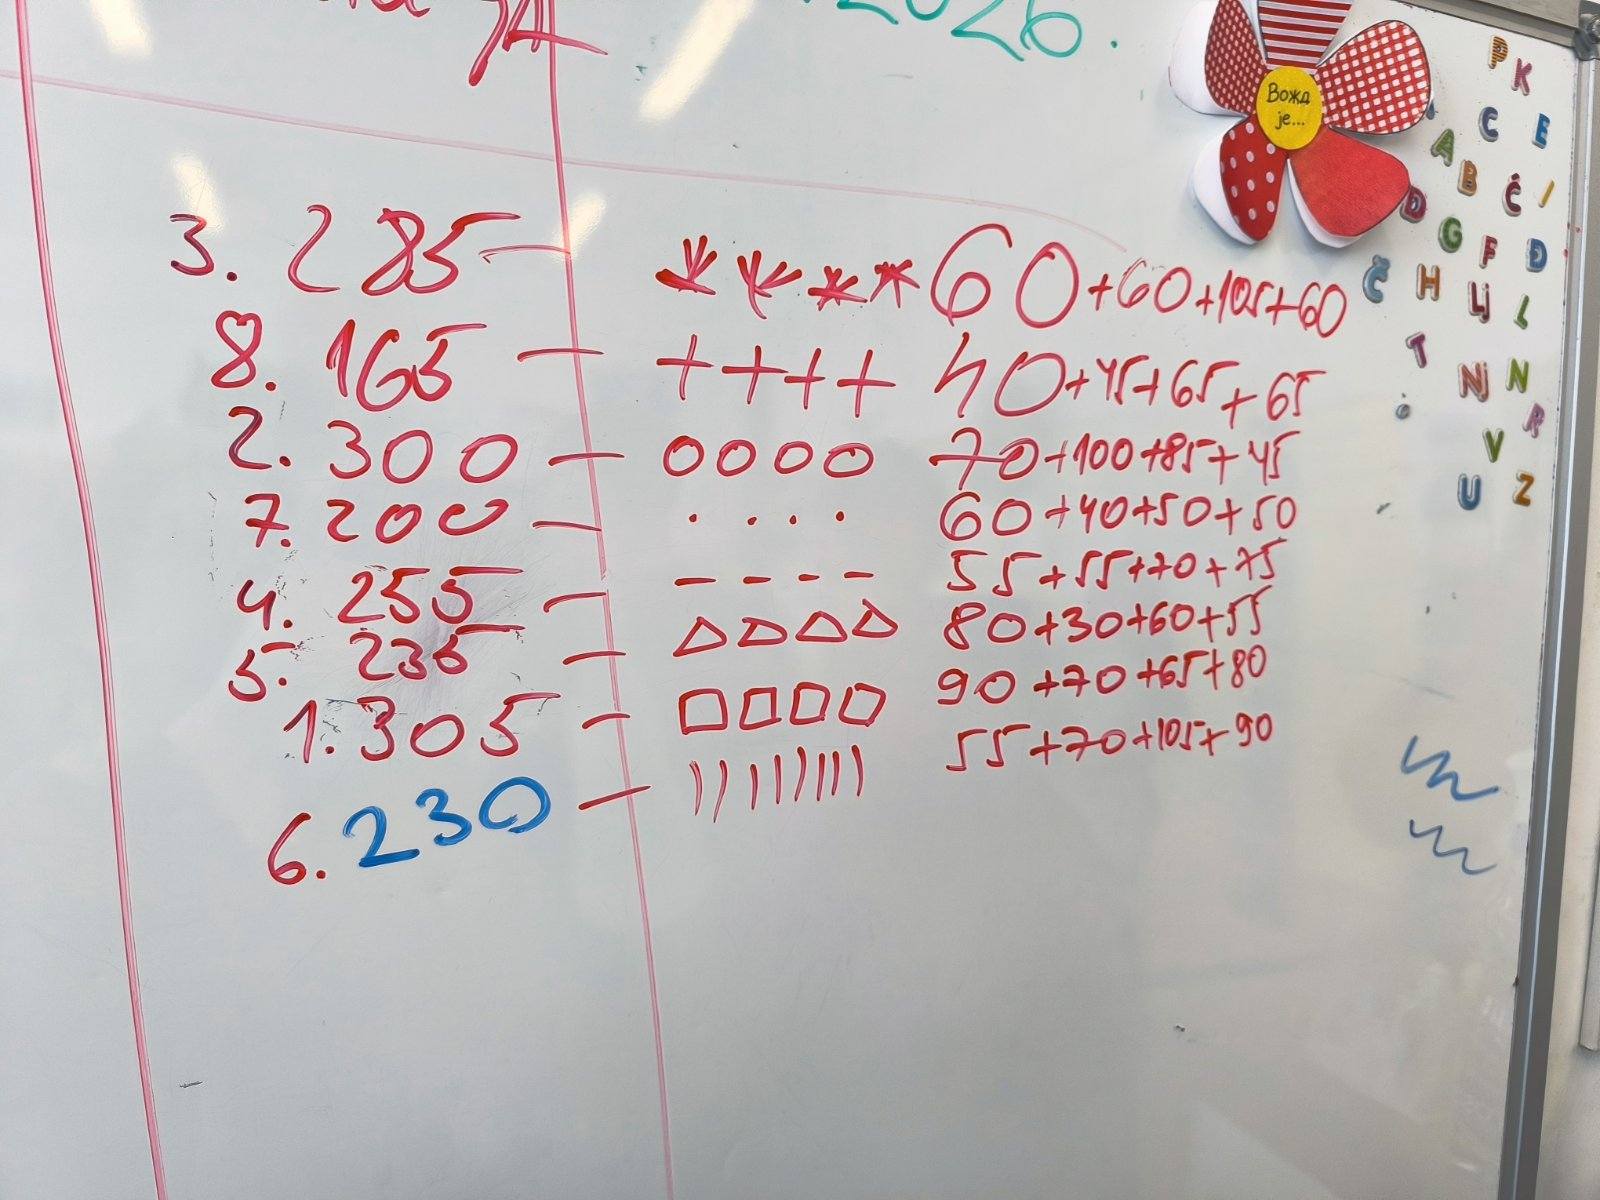 2026.
Вожд
је...
3. 285 — **** 60+60+105+60
8. 165 — ++++ 40+45+65+65
2. 300 — OOOO 70+100+85+45
7. 200 — .... 60+40+50+50
4. 255 — ---- 55+55+70+75
5. 235 — △△△△ 80+30+60+55
1. 305 — □□□□ 90+70+65+80
6. 230 — |||||||| 55+70+105+90
P K
C E
A B Č
D G F D
Č H Lj L
T Nj N
R
V
U Z